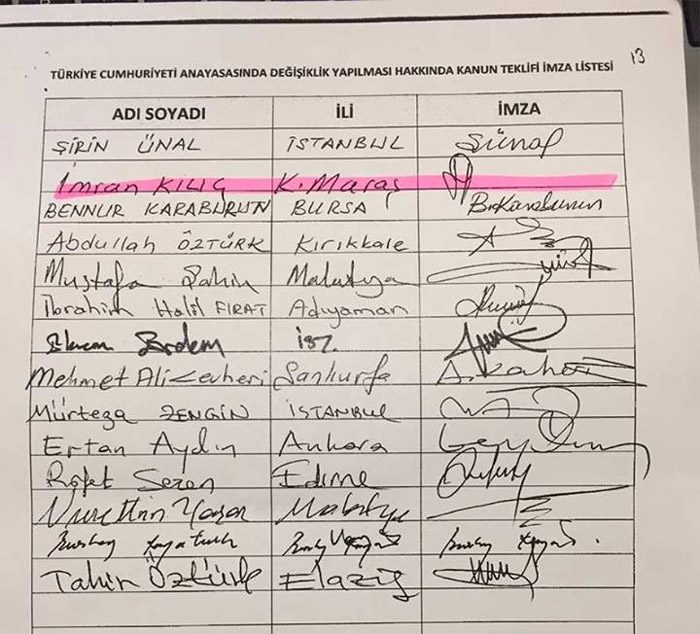 13
TÜRKİYE CUMHURİYETİ ANAYASASINDA DEĞİŞİKLİK YAPILMASI HAKKINDA KANUN TEKLİFİ İMZA LİSTESİ
ADI SOYADI İLİ İMZA
ŞİRİN ÜNAL İSTANBUL SÜnal
İmran KILIÇ K.Maraş
BENNUR KARABURUN BURSA B.Karaburun
Abdullah ÖZTÜRK Kırıkkale
Mustafa Şahin Malatya
İbrahim Halil FIRAT Adıyaman
Ekrem Erdem İST.
Mehmet Ali Cevheri Şanlıurfa
Mürteza ZENGİN İSTANBUL
Ertan Aydın Ankara
Rafet Sezen Edirne
Nurettin Yaşar Malatya
Tahir Öztürk Elazığ